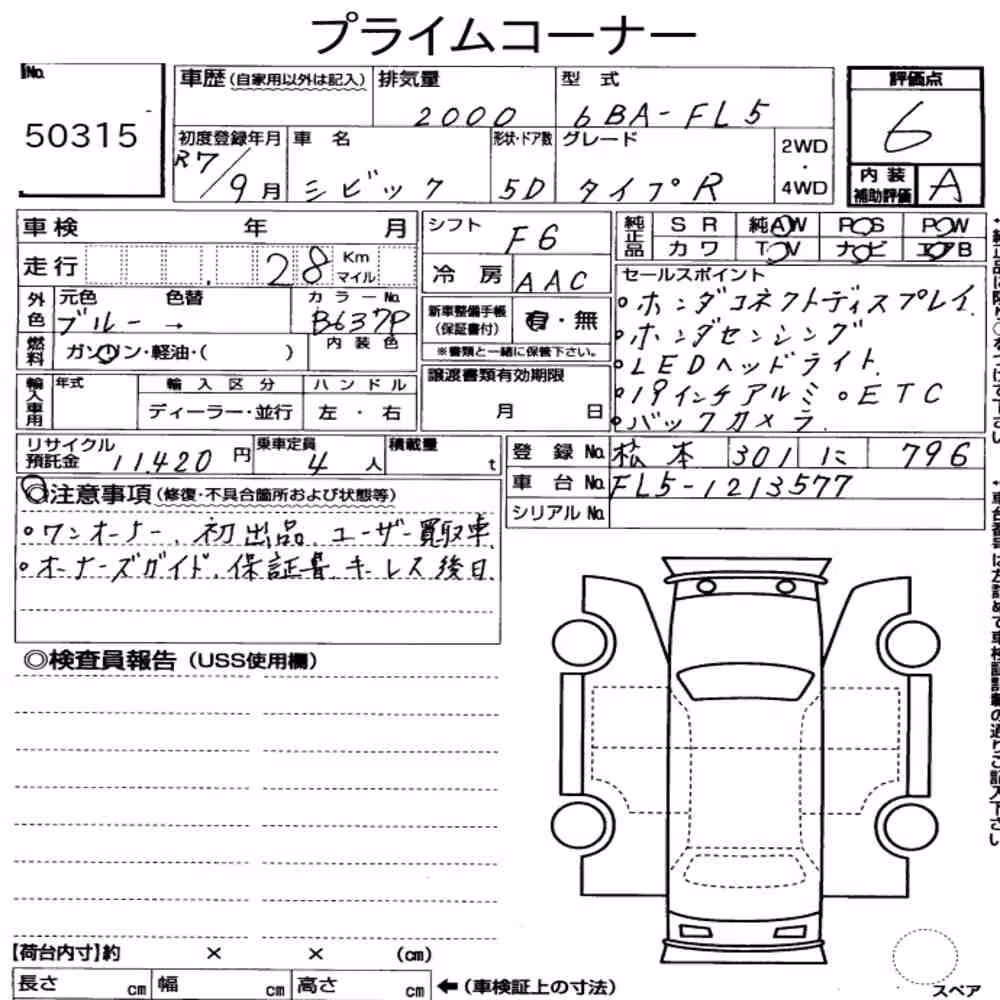 プライムコーナー
No. 50315
車歴(自家用以外は記入) 排気量 2000 型式 6BA-FL5
評価点 6
初度登録年月 R7/9月 車名 シビック 形状・ドア数 5D グレード タイプR 2WD・4WD
内装補助評価 A
車検 年 月
走行 28 Km マイル
シフト F6
冷房 AAC
純正品 SR 純AW PS PW
カワ TV ナビ エアB
外色 元色 ブルー → 色替 カラーNo. B637P
内装色
燃料 ガソリン・軽油・( )
新車整備手帳(保証書付) 有・無
※書類と一緒に保管下さい。
セールスポイント
・ホンダコネクトディスプレイ
・ホンダセンシング
・LEDヘッドライト
・19インチアルミ ・ETC
・バックカメラ
輸入車用 年式 輸入区分 ハンドル
ディーラー・並行 左・右
譲渡書類有効期限 月 日
リサイクル預託金 11420円 乗車定員 4人 積載量 t
登録No. 松本 301 に 796
車台No. FL5-1213577
シリアルNo.
◎注意事項(修復・不具合箇所および状態等)
・ワンオーナー、初出品、ユーザー買取車
・オーナーズガイド、保証書、キーレス後日
◎検査員報告(USS使用欄)
【荷台内寸】約 × × (cm)
長さ cm 幅 cm 高さ cm ←(車検証上の寸法)
スペア